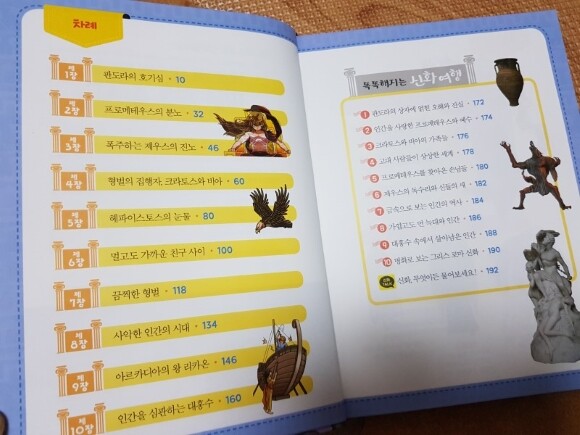 차례
제1장 판도라의 호기심 • 10
제2장 프로메테우스의 분노 • 32
제3장 폭주하는 제우스의 진노 • 46
제4장 형벌의 집행자, 크라토스와 비아 • 60
제5장 헤파이스토스의 눈물 • 80
제6장 멀고도 가까운 친구 사이 • 100
제7장 끔찍한 형벌 • 118
제8장 사악한 인간의 시대 • 134
제9장 아르카디아의 왕 리카온 • 146
제10장 인간을 심판하는 대홍수 • 160
똑똑해지는 신화 여행
1 판도라의 상자에 얽힌 오해와 진실 • 172
2 인간을 사랑한 프로메테우스와 예수 • 174
3 크라토스와 비아의 가족들 • 176
4 고대 사람들이 상상한 세계 • 178
5 프로메테우스를 찾아온 손님들 • 180
6 제우스의 독수리와 신들의 새 • 182
7 금속으로 보는 인간의 역사 • 184
8 가깝고도 먼 늑대와 인간 • 186
9 대홍수 속에서 살아남은 인간 • 188
10 명화로 보는 그리스 로마 신화 • 190
신화, 무엇이든 물어보세요! • 192